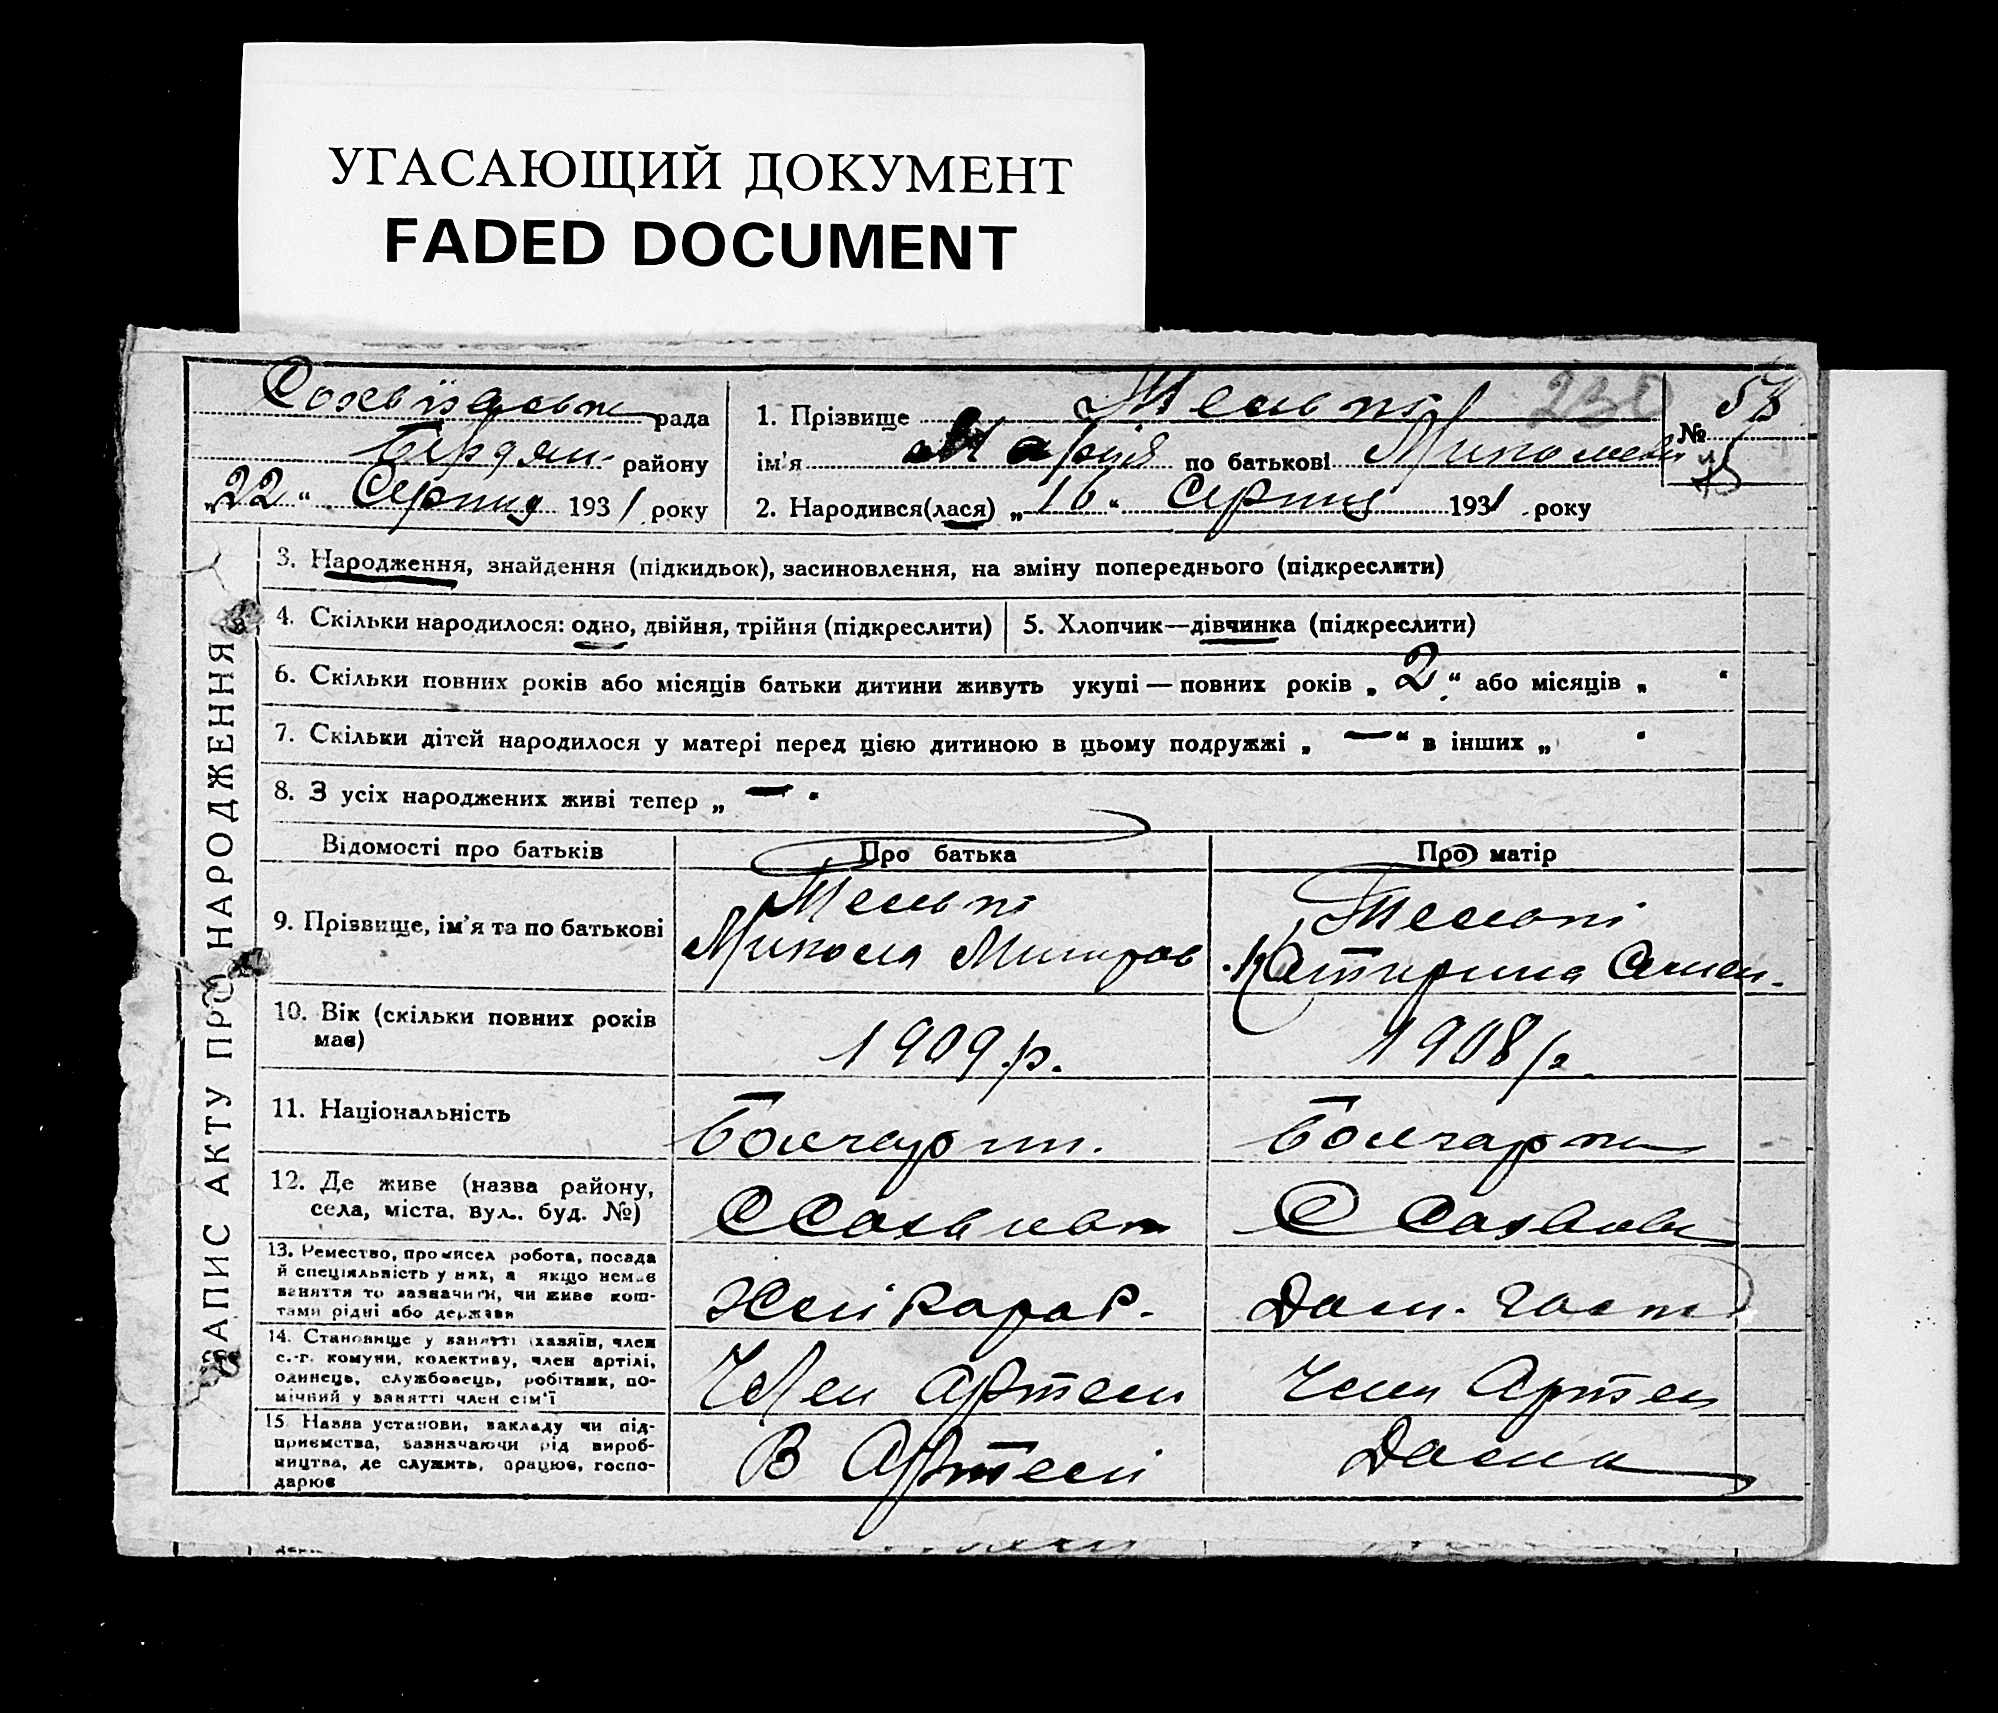 УГАСАЮЩИЙ ДОКУМЕНТ
FADED DOCUMENT
рада
Бердян. району
„22“ Серпня 1931 року
1. Прізвище
ім'я Марія по батькові
2. Народився(лася) „16“ Серпня 1931 року
230
№
ЗАПИС АКТУ ПРО НАРОДЖЕННЯ
3. Народження, знайдення (підкидьок), засиновлення, на зміну попереднього (підкреслити)
4. Скільки народилося: одно, двійня, трійня (підкреслити)
5. Хлопчик—дівчинка (підкреслити)
6. Скільки повних років або місяців батьки дитини живуть укупі — повних років „2“ або місяців „ “
7. Скільки дітей народилося у матері перед цією дитиною в цьому подружжі „—“ в інших „ “
8. З усіх народжених живі тепер „—“
Відомості про батьків
Про батька
Про матір
9. Прізвище, ім'я та по батькові
Микола
Катирина
10. Вік (скільки повних років
має)
1909 р.
1908 р.
11. Національність
Болгарин.
Болгарка
12. Де живе (назва району,
села, міста, вул.. буд. №)
13. Ремество, промисел робота, посада
й спеціяльність у них, а якщо немає
заняття то зазначити, чи живе кош-
тами рідні або держави
Хлібороб.
Дом. Госп
14. Становище у занятті (хазяїн, член
с.-г. комуни, колективу, член артілі,
одинець, службовець, робітник, по-
мічний у занятті член сім'ї
Член Артели
Член Артел
15. Назва установи, закладу чи під-
приємства, зазначаючи рід вироб-
ництва, де служить, працює, госпо-
дарює
В Артелі
Дома